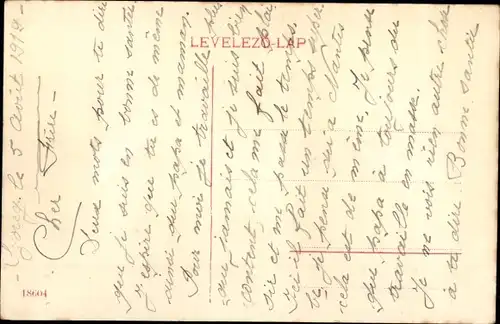 le 5 Août 1919 -
Cher Frère -
Deux mots pour te dire
que je suis en bonne santée
j'espère que tu es de même
ainsi que papa et maman.
Pour moi je travaille plus
que jamais et je suis bien
content, cela me fait plai
sir et me passe le temps.
Ici il fait un temps super
be, je pense qu'à Nantes
cela est de même. Je pense
que papa à toujours du
travaille en masse.
Je ne vois rien autre chose
à te dire. Bonne santée
LEVELEZŐ-LAP
18604